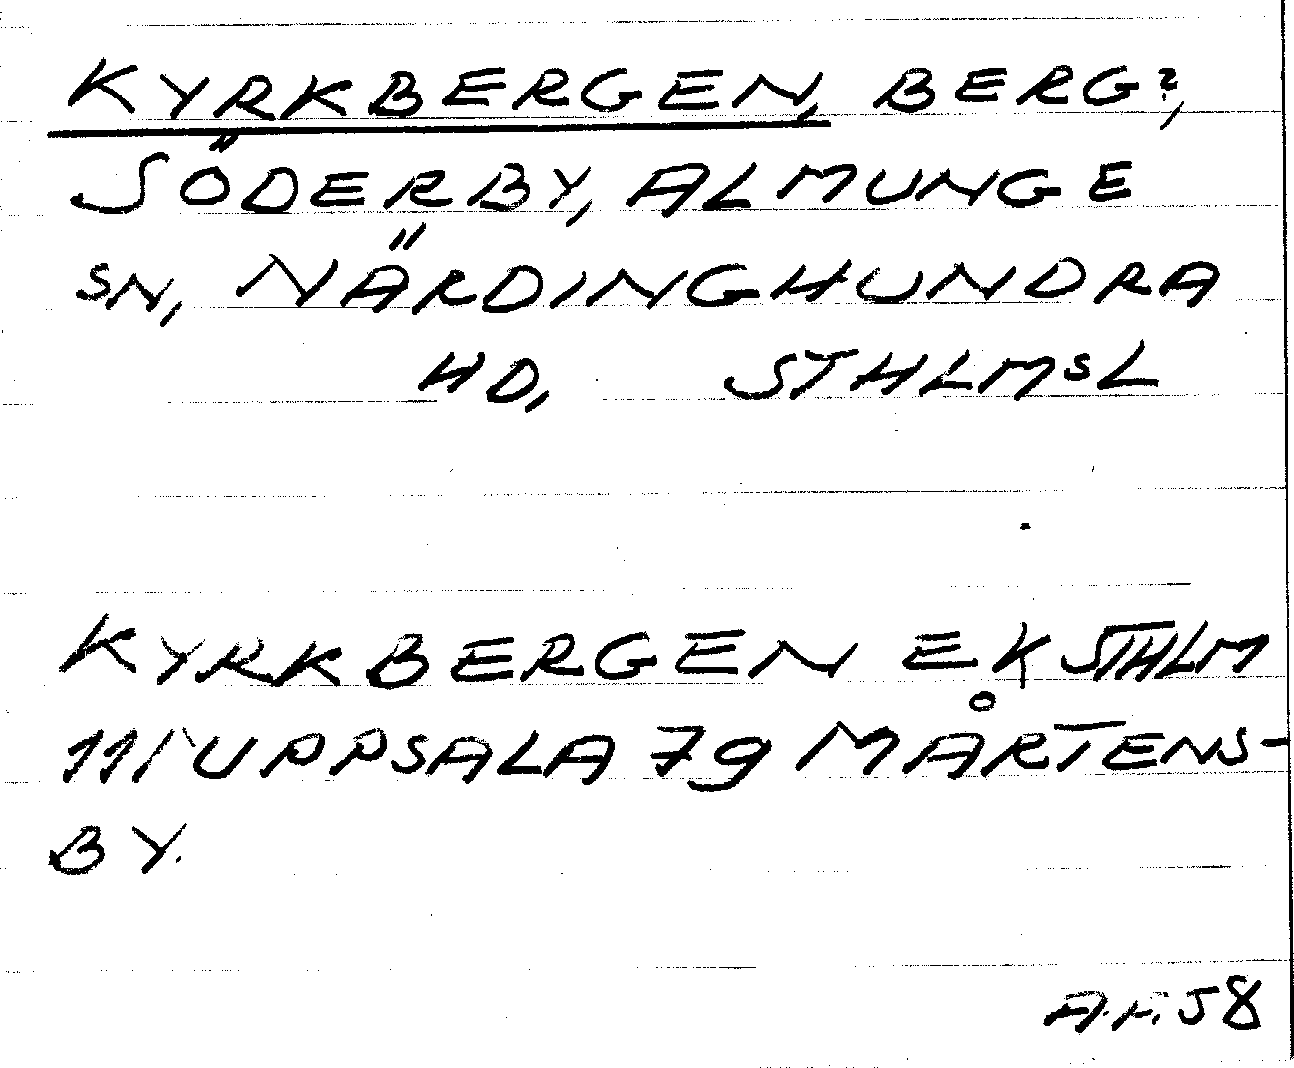 KYRKBERGEN, BERG?,
SÖDERBY, ALMUNGE
SN, NÄRDINGHUNDRA
HD, STHLMSL
KYRKBERGEN EK STHLM
111 UPPSALA 79 MÅRTENS-
BY.
A.F. 58